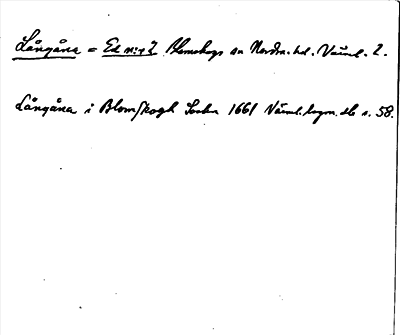 Långåna = Ed n:r 2 Blomskogs sn Nordm. hd. Värml. l.
Långåna i Blomskogh Sochn 1661 Värml. lagm. db s. 58.